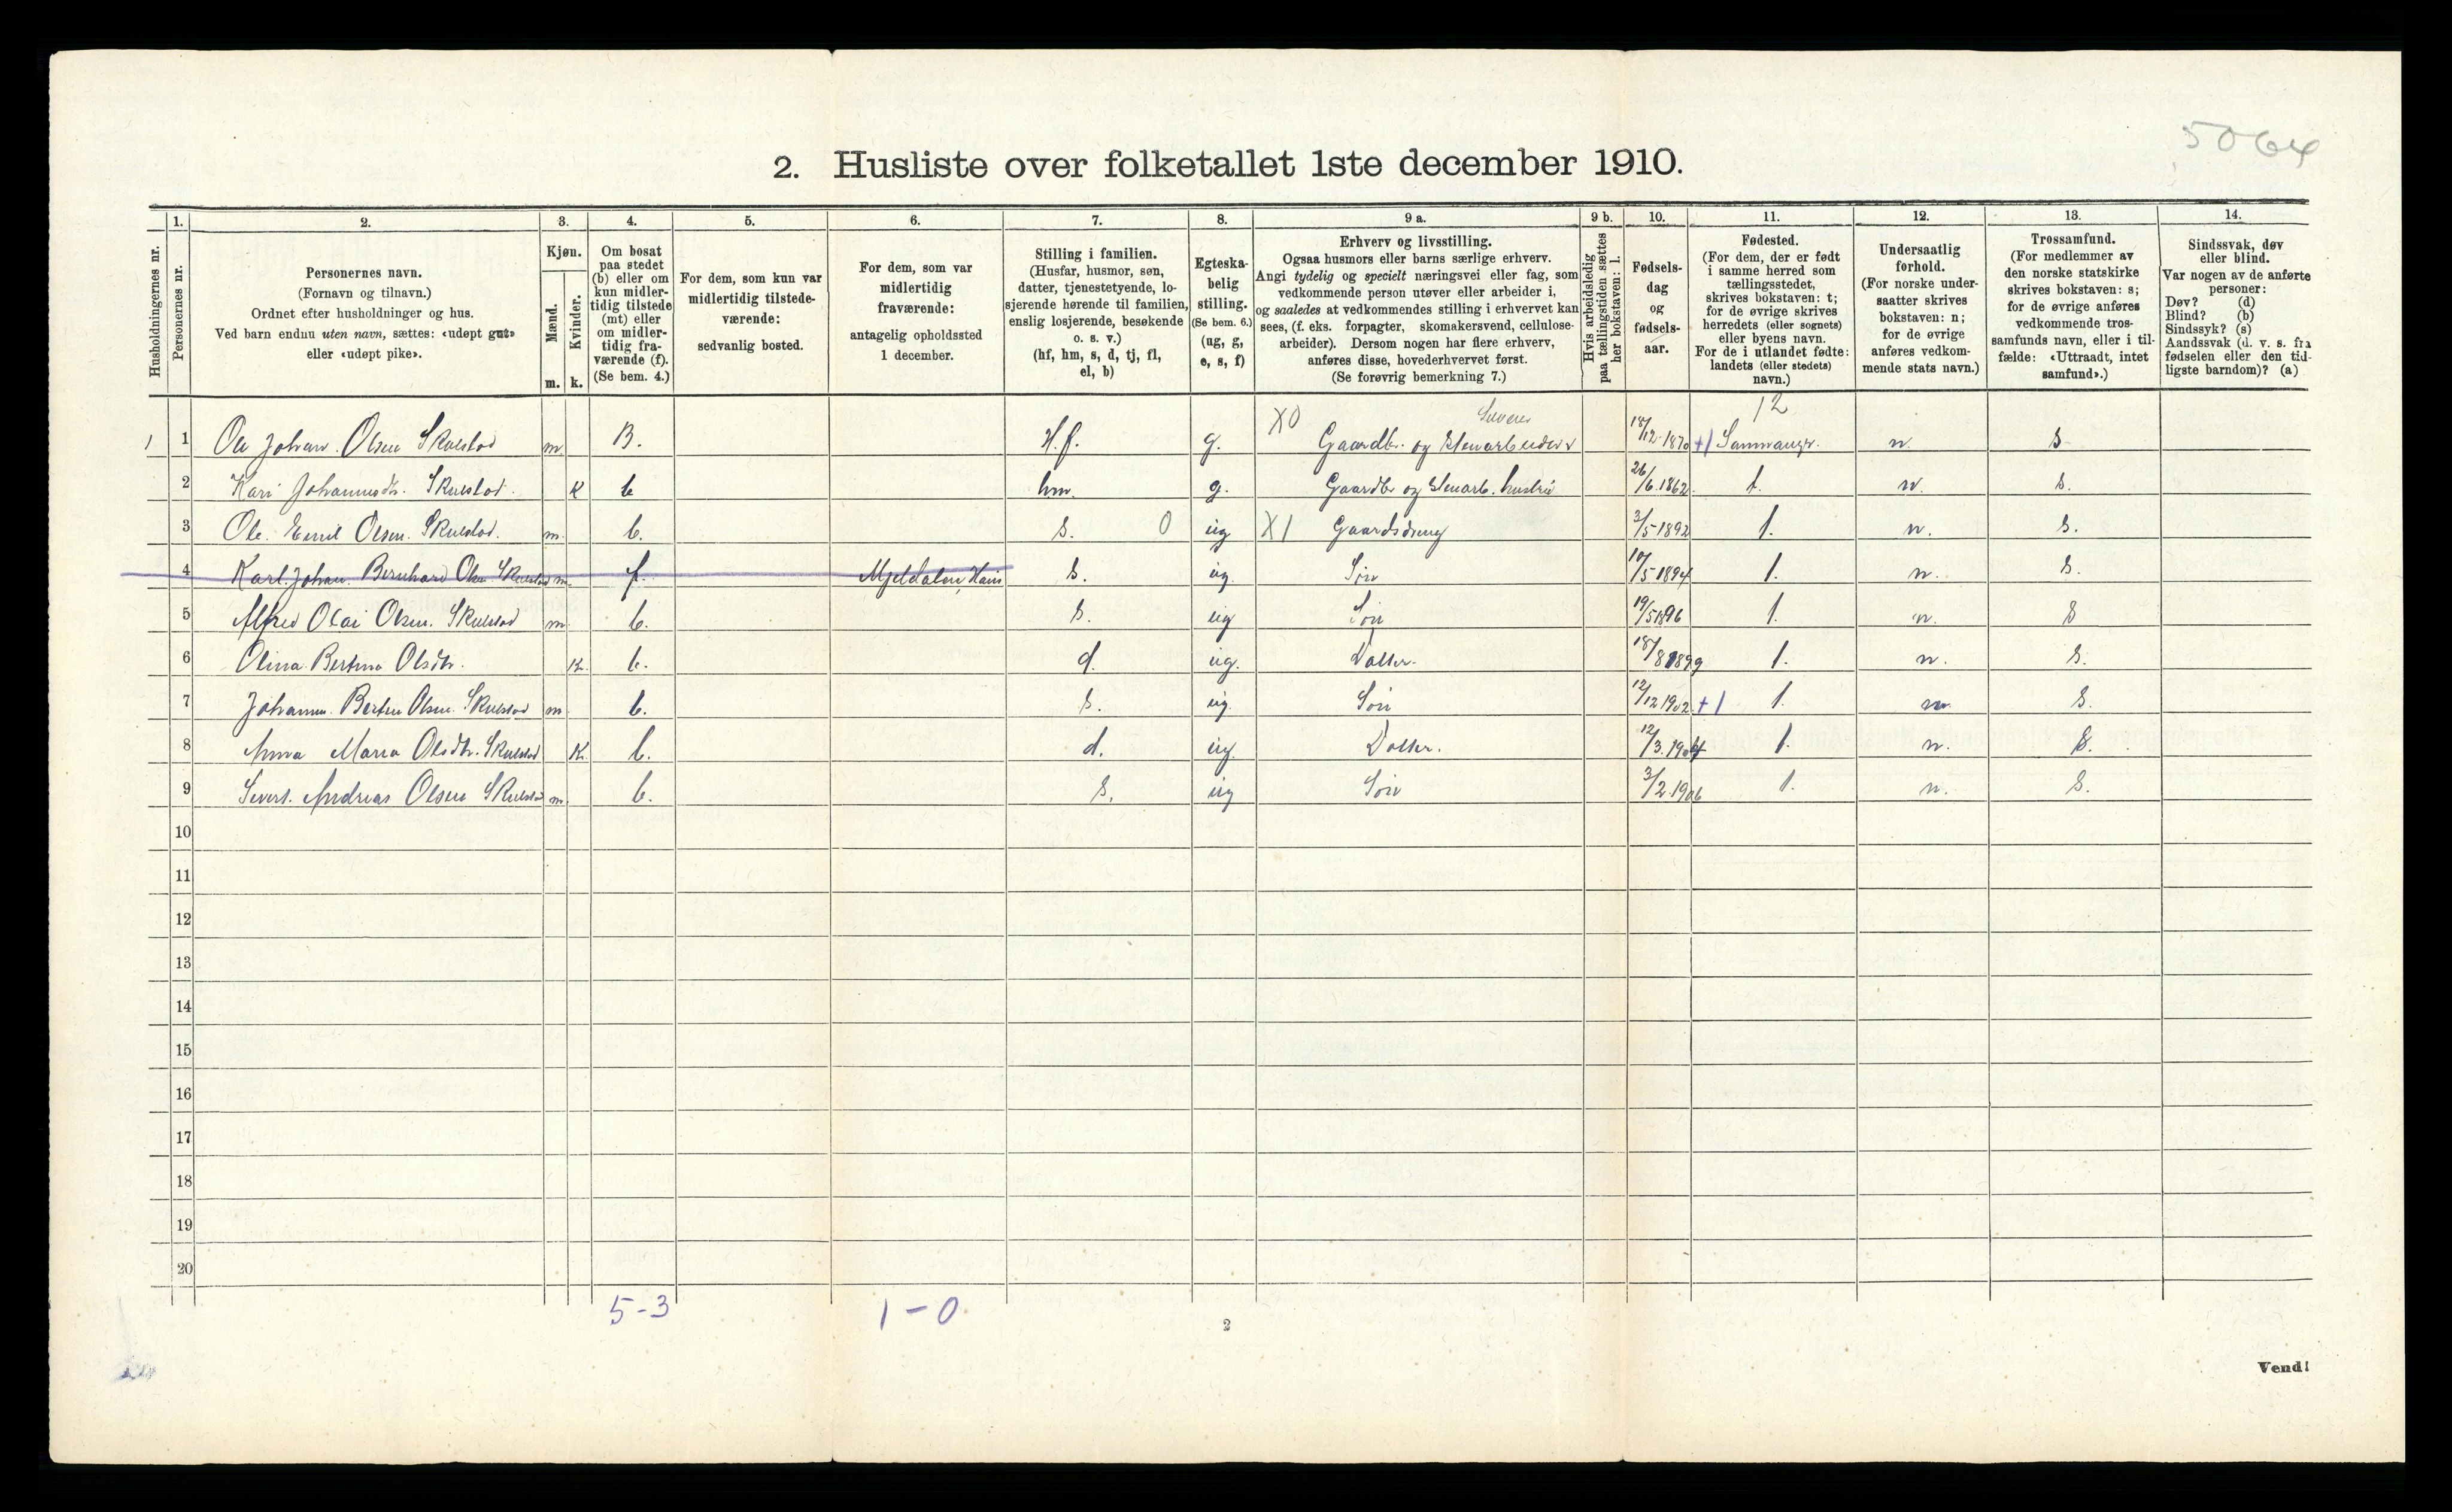 5064
2. Husliste over folketallet 1ste december 1910.
Husholdningernes nr.
1.
Personernes nr.
2.
Personernes navn.
(Fornavn og tilnavn.)
Ordnet efter husholdninger og hus.
Ved barn endnu uten navn, sættes: «udøpt gut»
eller «udøpt pike».
3.
Kjøn.
Mænd.
Kvinder.
m. k.
4.
Om bosat
paa stedet
(b) eller om
kun midler-
tidig tilstede
(mt) eller
om midler-
tidig fra-
værende (f).
(Se bem. 4.)
5.
For dem, som kun var
midlertidig tilstede-
værende:
sedvanlig bosted.
6.
For dem, som var
midlertidig
fraværende:
antagelig opholdssted
1 december.
7.
Stilling i familien.
(Husfar, husmor, søn,
datter, tjenestetyende, lo-
sjerende hørende til familien,
enslig losjerende, besøkende
o. s. v.)
(hf, hm, s, d, tj, fl,
el, b)
8.
Egteska-
belig
stilling.
(Se bem. 6.)
(ug, g,
e, s, f)
9 a.
Erhverv og livsstilling.
Ogsaa husmors eller barns særlige erhverv.
Angi tydelig og specielt næringsvei eller fag, som
vedkommende person utøver eller arbeider i,
og saaledes at vedkommendes stilling i erhvervet kan
sees, (f. eks. forpagter, skomakersvend, cellulose-
arbeider). Dersom nogen har flere erhverv,
anføres disse, hovederhvervet først.
(Se forøvrig bemerkning 7.)
9 b.
Hvis arbeidsledig
paa tællingstiden sættes
her bokstaven: l.
10.
Fødsels-
dag
og
fødsels-
aar.
11.
Fødested.
(For dem, der er født
i samme herred som
tællingsstedet,
skrives bokstaven: t;
for de øvrige skrives
herredets (eller sognets)
eller byens navn.
For de i utlandet fødte:
landets (eller stedets)
navn.)
12.
Undersaatlig
forhold.
(For norske under-
saatter skrives
bokstaven: n;
for de øvrige
anføres vedkom-
mende stats navn.)
13.
Trossamfund.
(For medlemmer av
den norske statskirke
skrives bokstaven: s;
for de øvrige anføres
vedkommende tros-
samfunds navn, eller i til-
fælde: «Uttraadt, intet
samfund».)
14.
Sindssvak, døv
eller blind.
Var nogen av de anførte
personer:
Døv? (d)
Blind? (b)
Sindssyk? (s)
Aandssvak (d. v. s. fra
fødselen eller den tid-
ligste barndom)? (a)
X0 12
1 1 Ole Johan Olsen Skulstad m. B. H.f. g. Gaardbr. og Stenarbeider 18/12 1870 +1 Samnanger n. s
2 Kari Johannesdtr. Skulstad. K b hm. g. Gaardbr og Stenarb. hustru 26/6.1862. t. n. s.
3 Ole Emil Olsen Skulstad. m. b. s. 0 ug X1 Gaardsdreng 3/5 1892 t. n. s.
4 Karl Johan Bernhard Olsen Skulstad m. f. Mjeldalen, Haus s. ug. Søn 10/5 1894 t. n. s.
5 Alfred Olai Olsen. Skulstad m. b. s. ug Søn 19/5 1896 t. n. s
6 Olina Bertina Olsdtr. K. b. d. ug. Datter. 18/8 1899 t. n. s.
7 Johannes Bertin Olsen Skulstad m b. s. ug. Søn 12/12 1902. +1 t. n. s.
8 Anna Maria Olsdtr. Skulstad K. b. d. ug. Datter. 12/3.1904 t. n. s.
9 Sivert Andreas Olsen Skulstad m. b. s. ug Søn 3/2.1906 t. n. s.
10
11
12
13
14
15
16
17
18
19
20
5-3 1-0
2
Vend!